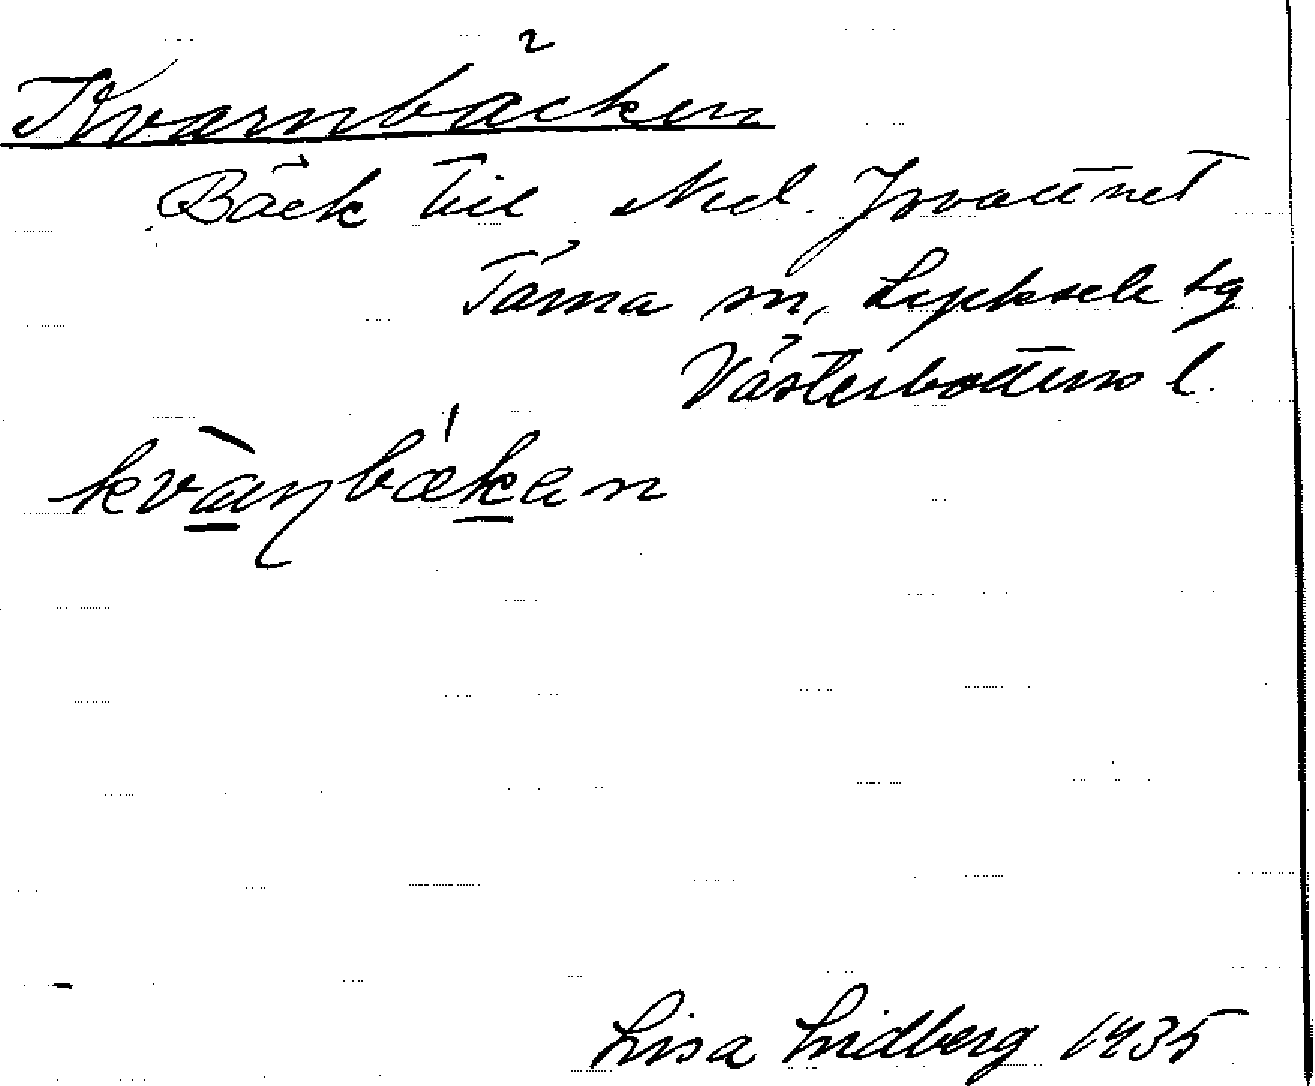 Kvarnbäcken
Bäck till Ned. Jovattnet
Tärna sn, Lycksele tg
Västerbottens l.
kvàɳbækan
Lisa Lidberg 1935